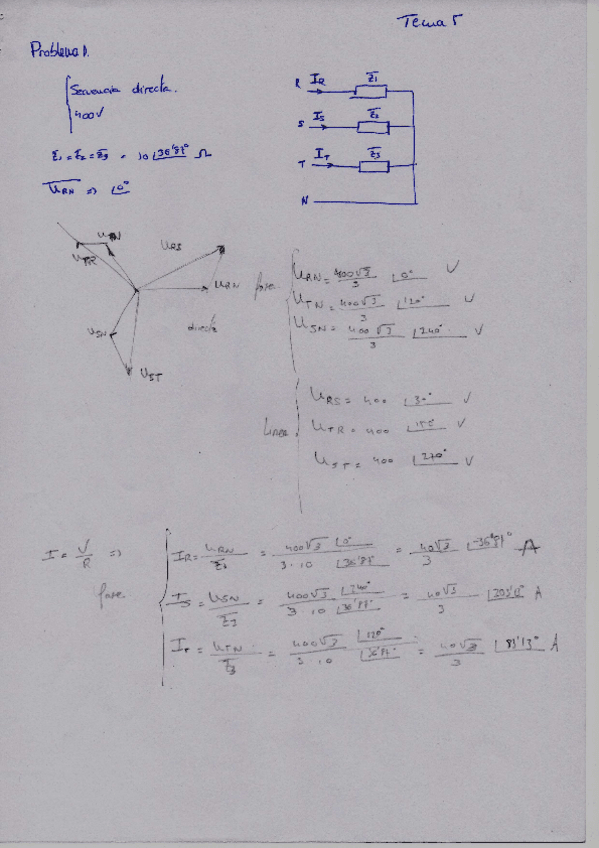 Tema 5
Problema 1.
Secuencia directa.
400V
Z1 = Z2 = Z3 = 10 ∟36'87° Ω
URN => ∟0°
R IR Z1
S IS Z2
T IT Z3
N
UTN
UTR
URS
URN
USN
UST
directa
fase
URN = 400√3/3 ∟0° V
UTN = 400√3/3 ∟120° V
USN = 400√3/3 ∟240° V
Linea
URS = 400 ∟30° V
UTR = 400 ∟150° V
UST = 400 ∟270° V
I = V/R =>
fase
IR = URN/Z1 = 400√3 ∟0° / 3·10 ∟36'87° = 40√3/3 ∟-36'87° A
IS = USN/Z3 = 400√3 ∟240° / 3·10 ∟36'87° = 40√3/3 ∟203'13° A
IT = UTN/Z3 = 400√3 ∟120° / 3·10 ∟36'87° = 40√3/3 ∟83'13° A